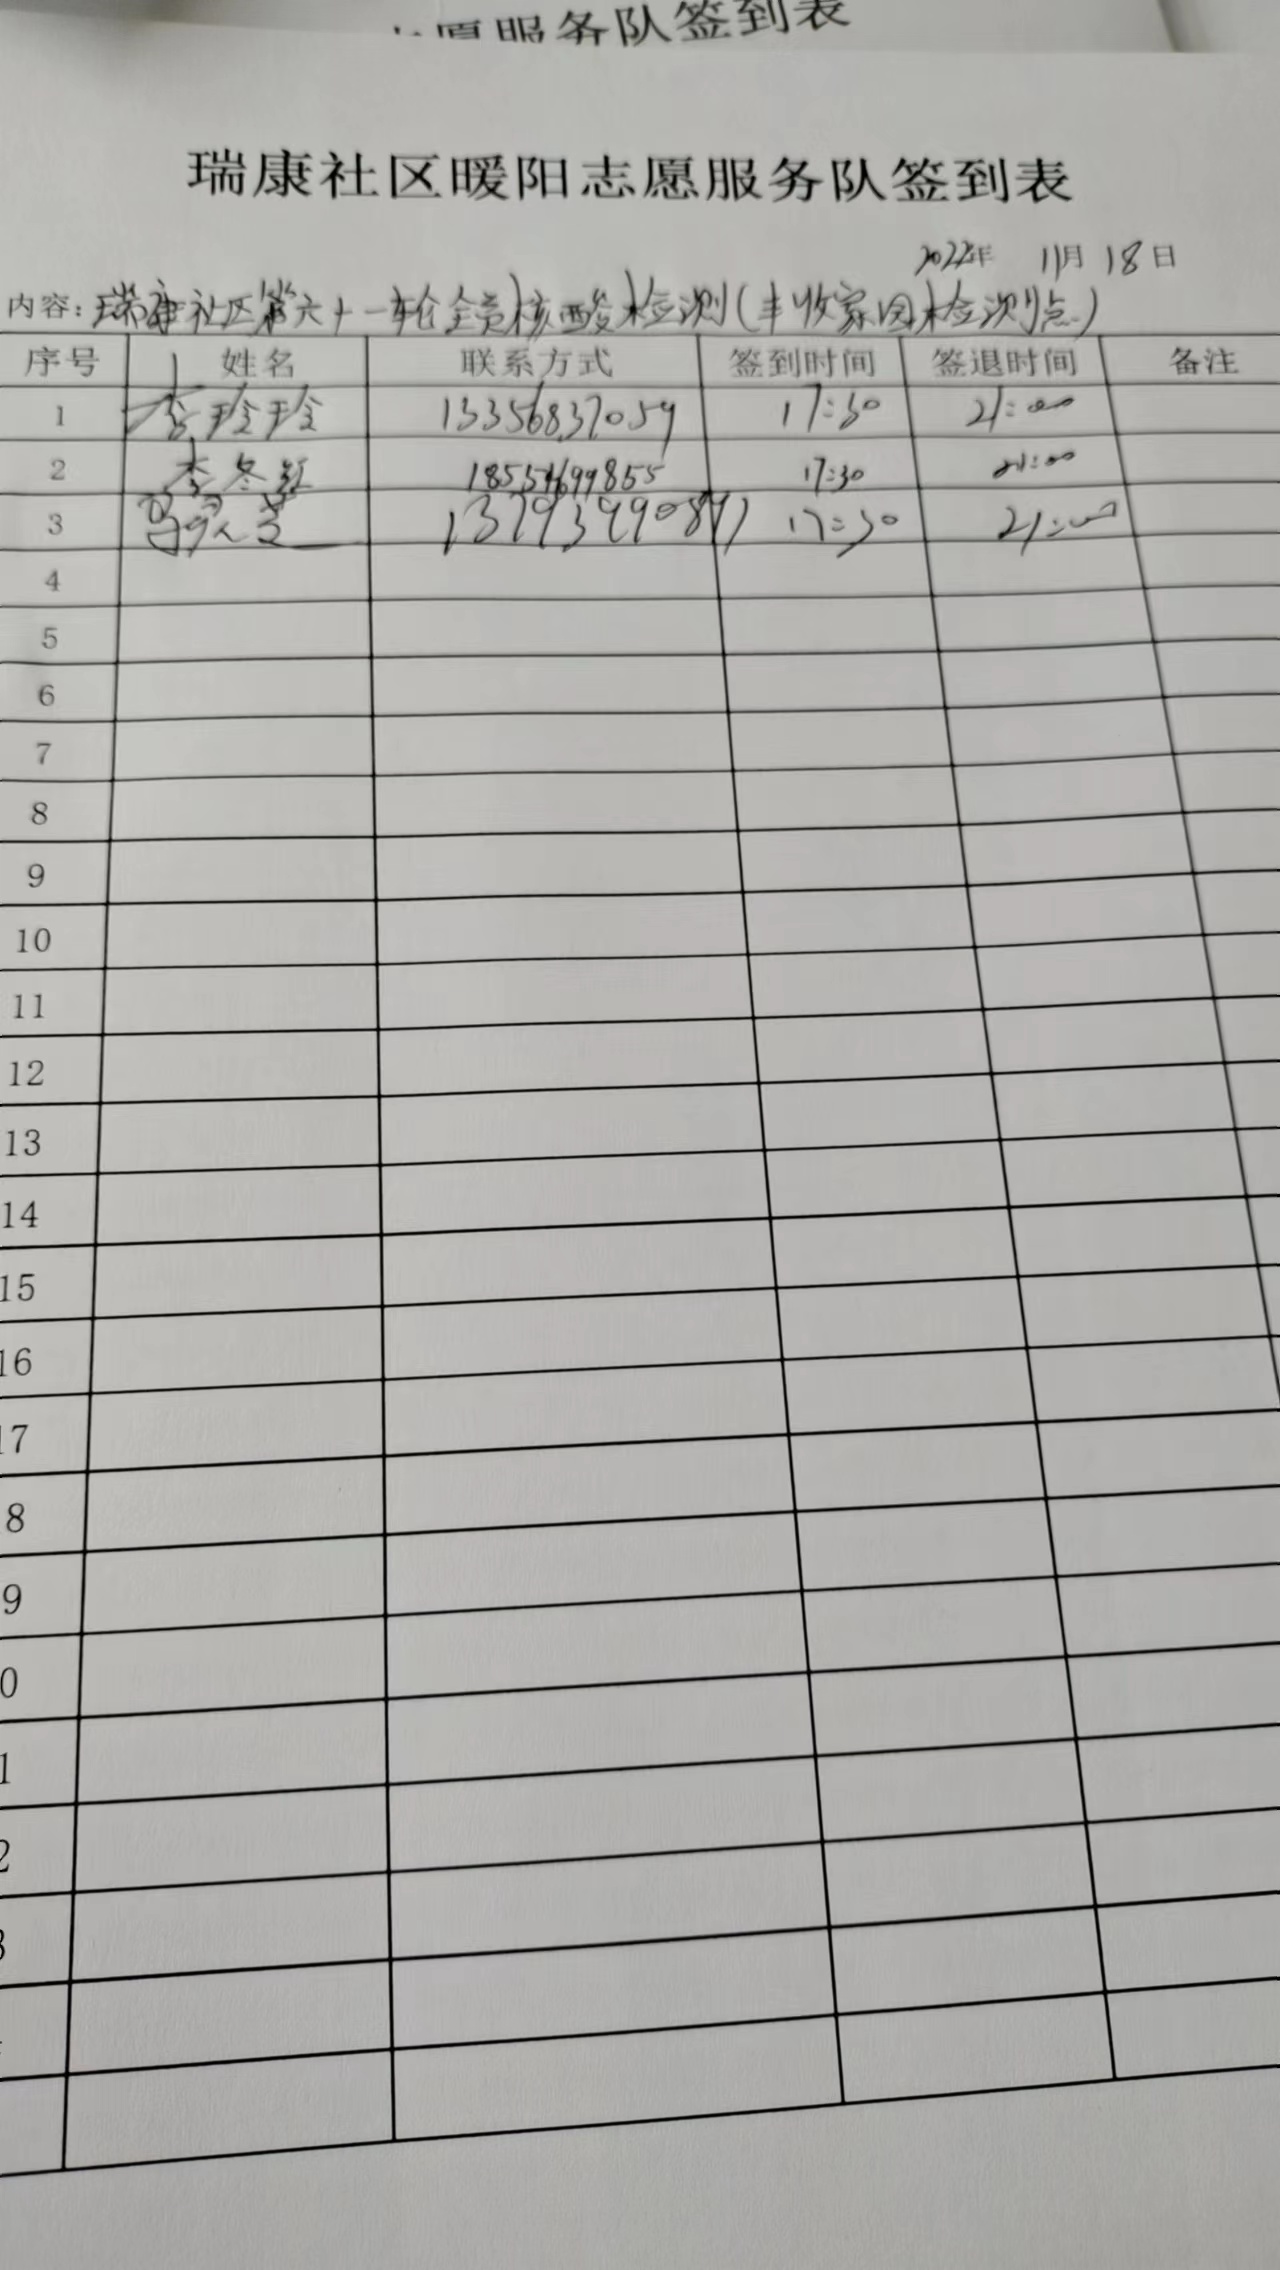 愿服务队签到表
瑞康社区暖阳志愿服务队签到表
2022年 11月 18日
内容：瑞康社区第六十一轮全员核酸检测（丰收家园检测点）
序号 姓名 联系方式 签到时间 签退时间 备注
1 李玲玲 13356837059 17:30 21:00
2 李冬红 17:30 21:00
3 13793990891 17:30 21:00
4
5
6
7
8
9
10
11
12
13
14
15
16
17
8
9
0
1
2
3